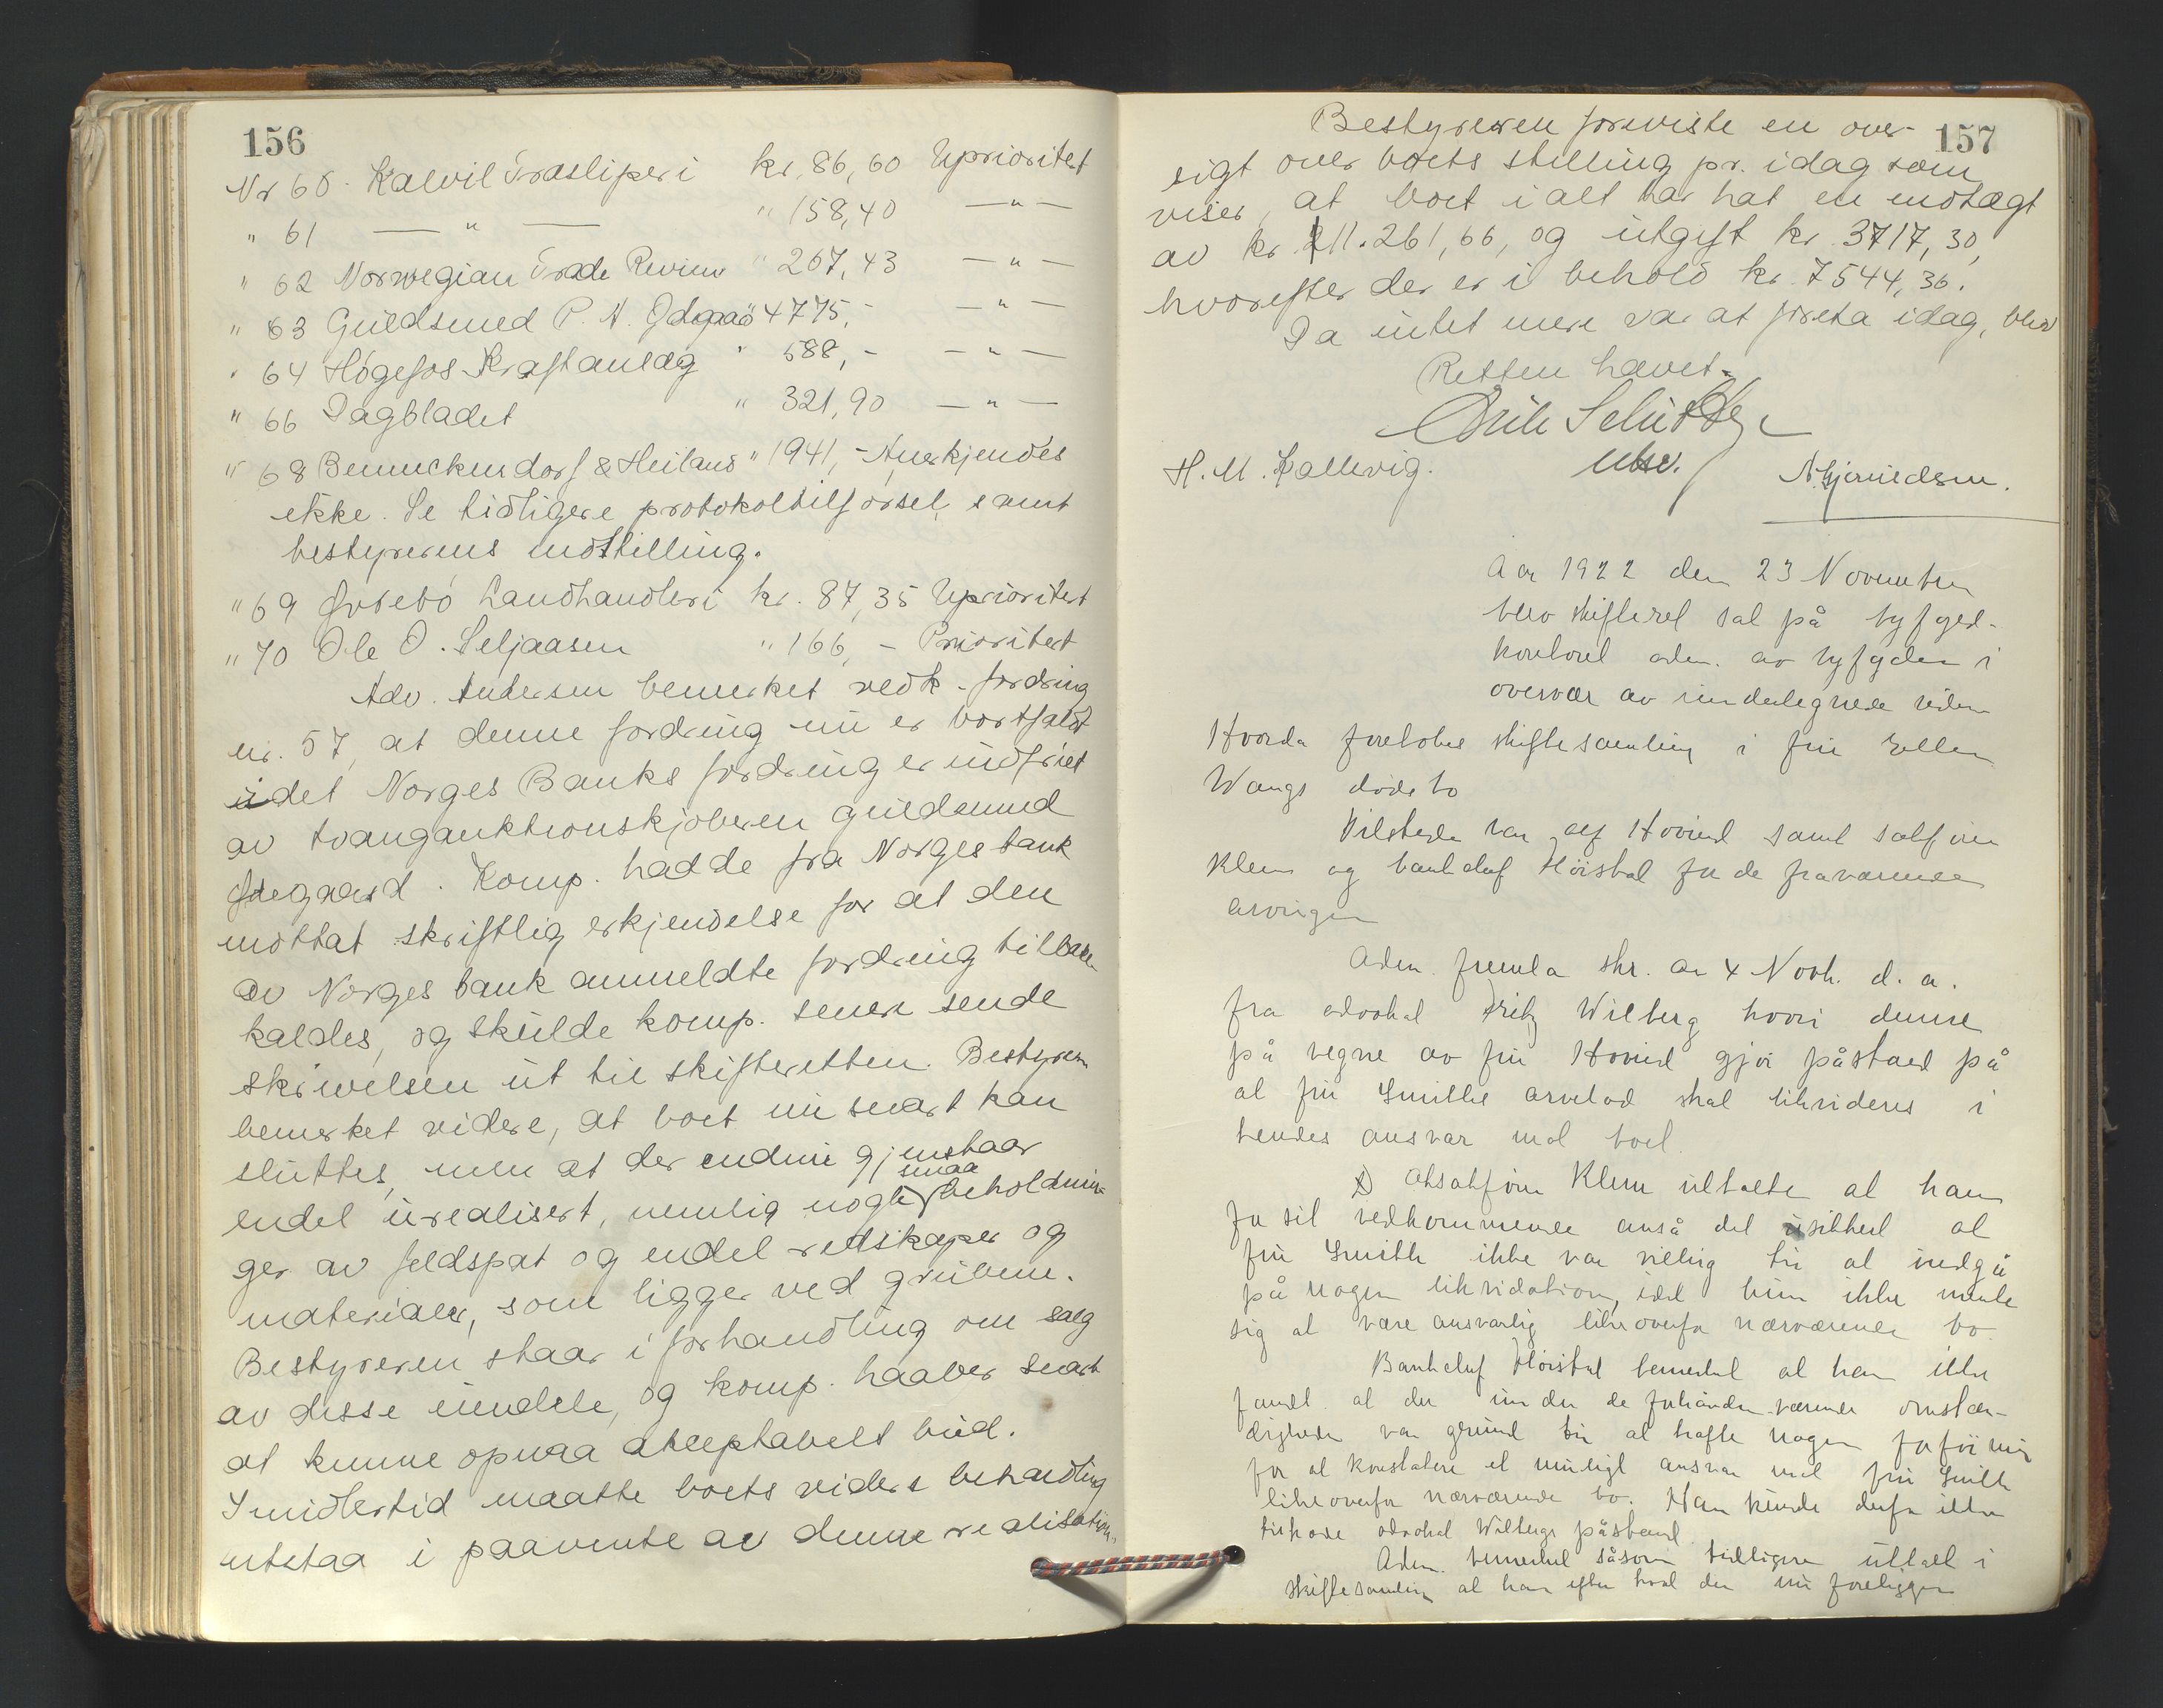 156
Nr 60 Kalvil Træsliperi kr. 86,60 Uprioritert
" 61 — " — " 158,40 — " —
" 62 Norwegian Trade Review " 207,43 — " —
" 63 Guldsmed P. A. Ødegaard " 4775,- — " —
" 64 Høgefos Kraftanlæg " 588,- — " —
" 66 Dagbladet " 321,90 — " —
" 68 Bennickendorf & Heilans " 1941,- Anerkjendes
ekke. Se tidligere protokoltilførsel, samt
bestyrerens indstilling.
" 69 Øvrebø Landhandleri kr. 87,35 Uprioritert
" 70 Ole O. Seljaasen " 166,- Prioritert
Adv. Andersen bemerket vedk. fordring
nr. 57, at denne fordring nu er bortfaldt
idet Norges Banks fordring er indfriet
av tvangauktionskjøberen guldsmed
Ødegaard. Komp. hadde fra Norges bank
mottat skriftlig erkjendelse for at den
av Norges bank anmeldte fordring tilbake-
kaldes, og skulde komp. senere sende
skrivelsen ut til skifteretten. Bestyreren
bemerket videre, at boet nu snart kan
sluttes, men at der endnu gjenstaar
endel urealisert, nemlig nogle smaa beholdnin-
ger av feldspat og endel redskaper og
materialer, som ligger ved grubene.
Bestyreren staar i forhandling om salg
av disse eiendele, og komp. haaber snart
at kunne opnaa akceptabelt bud.
Imidlertid maatte boets videre behandling
utstaa i paavente av denne realisation.
157
Bestyreren foreviste en over-
sigt over boets stilling pr. idag som
viser, at boet ialt har hat en indtægt
av kr. 11.261,66, og utgift kr. 3717,30,
hvorefter der er i behold kr. 7544,36.
Da intet mere var at foreta idag, blev
Retten hævet.
H. M. Kallevig.
Aar 1922 den 23 November
blev skifteret sat på byfged-
kontoret adm. av byfgden i
overvær av undertegnede vidner
Hvorda foretokes skiftesamling i fru Ellen
Wangs dødsbo
Tilstede var Hovind samt saksfører
Klem og bankchef Höistad for de fraværende
arvinger
Adm. fremla skr. av 4 Novb. d. a.
fra advokat Fritz Wilberg hvori denne
på vegne av fru Hovind gjör påstand på
at fru Smiths arvelod skal likvideres i
hendes ansvar mot boet.
Saksfører Klem uttalte at han
for sit vedkommende anså det usikkert at
fru Smith ikke var villig til at indgå
på nogen likvidation, idet hun ikke mente
sig at være ansvarlig likeoverfor nærværende bo.
Bankchef Höistad bemerket at han ikke
fandt at der under de forhåndenværende omstæn-
digheder var grund til at træffe nogen forföining
for at konstatere et muligt ansvar mot fru Smith
likeoverfor nærværende bo. Han kunde derfor ikke
tiltræde advokat Wilbergs påstand.
Adm. bemerket såsom tidligere uttalt i
skiftesamling at han efter hvad der nu foreligger